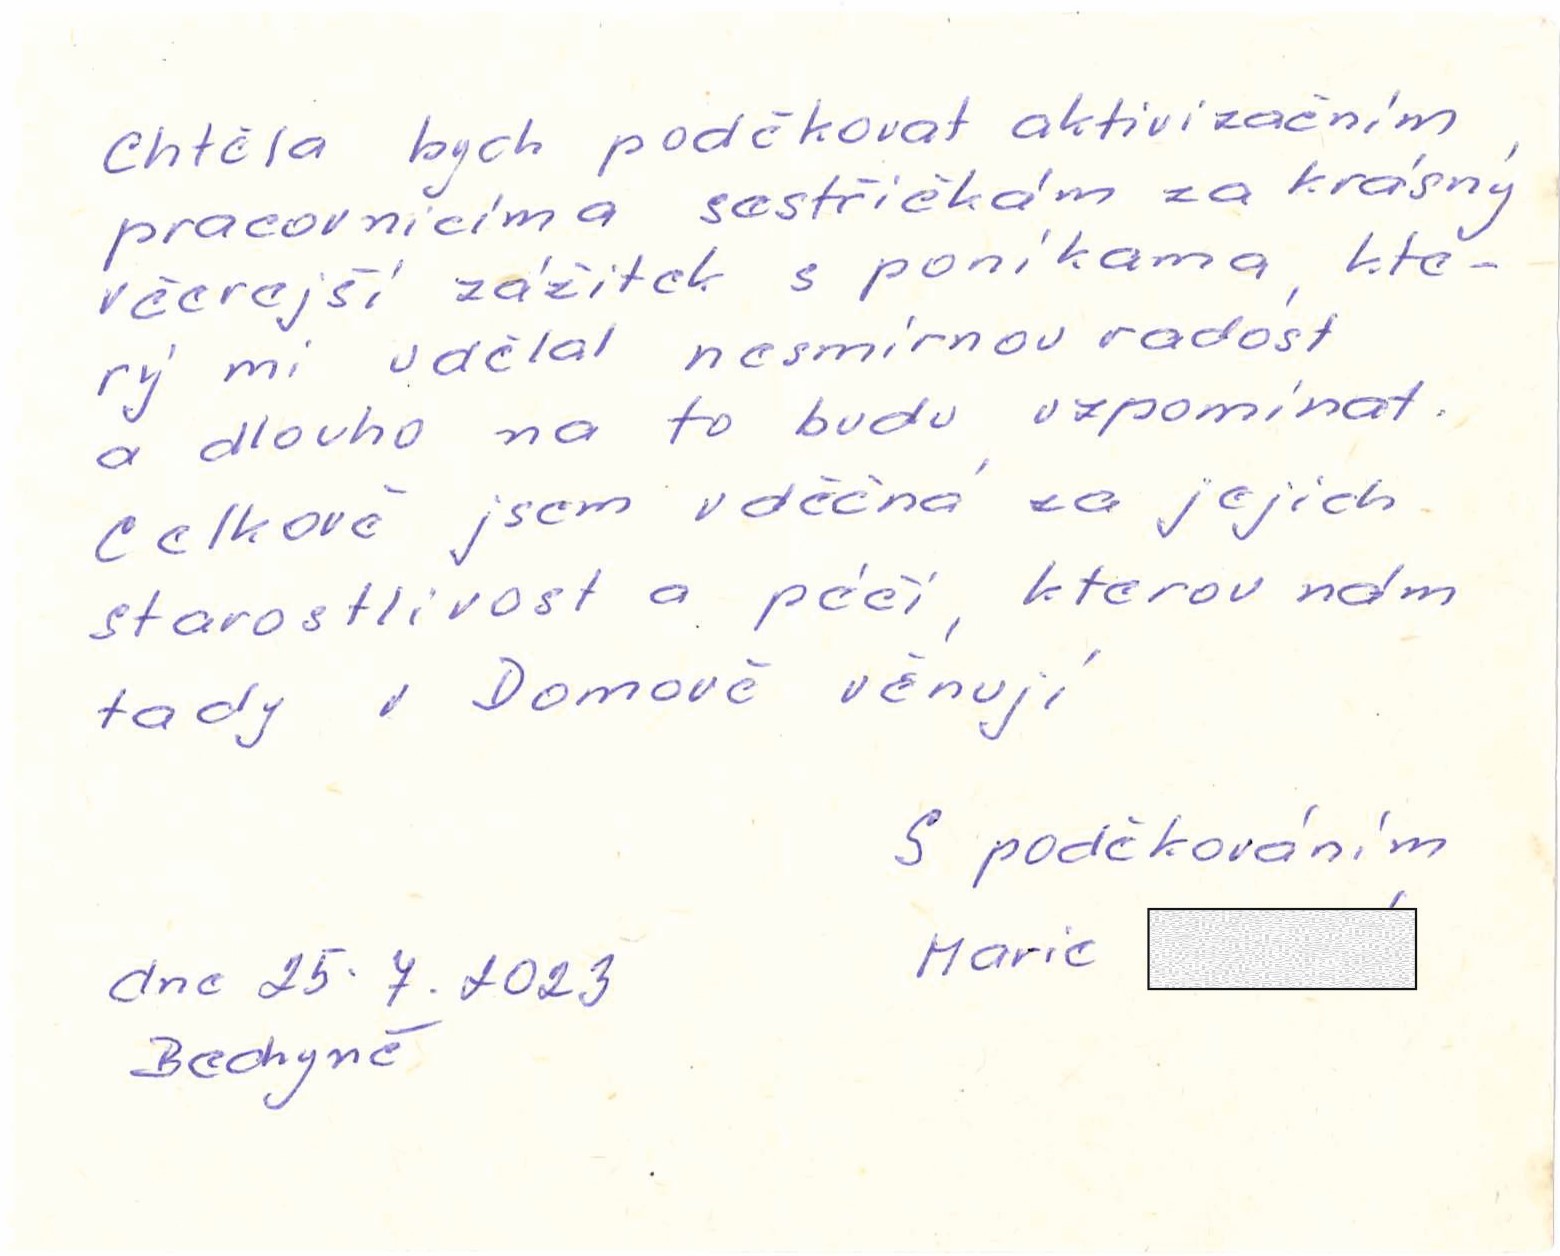 Chtěla bych poděkovat aktivizačním
pracovnicím a sestřičkám za krásný
včerejší zážitek s poníkama, kte-
rý mi udělal nesmírnou radost
a dlouho na to budu vzpomínat.
Celkově jsem vděčná za jejich
starostlivost a péčí, kterou nám
tady v Domově věnují
S poděkováním
Marie
dne 25. 7. 2023
Bechyně